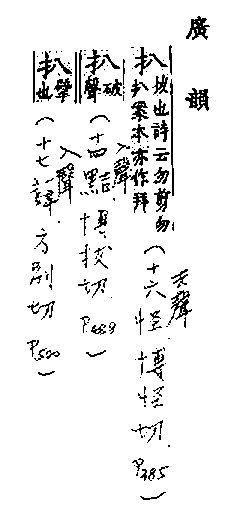 廣韻
扒拔也詩云勿剪勿
扒案本亦作拜
去聲
(十六怪.博怪切.P385)
扒破聲
入聲
(十四黠.博拔切.P489)
扒擘也
入聲
(十七薛.方別切.P500)